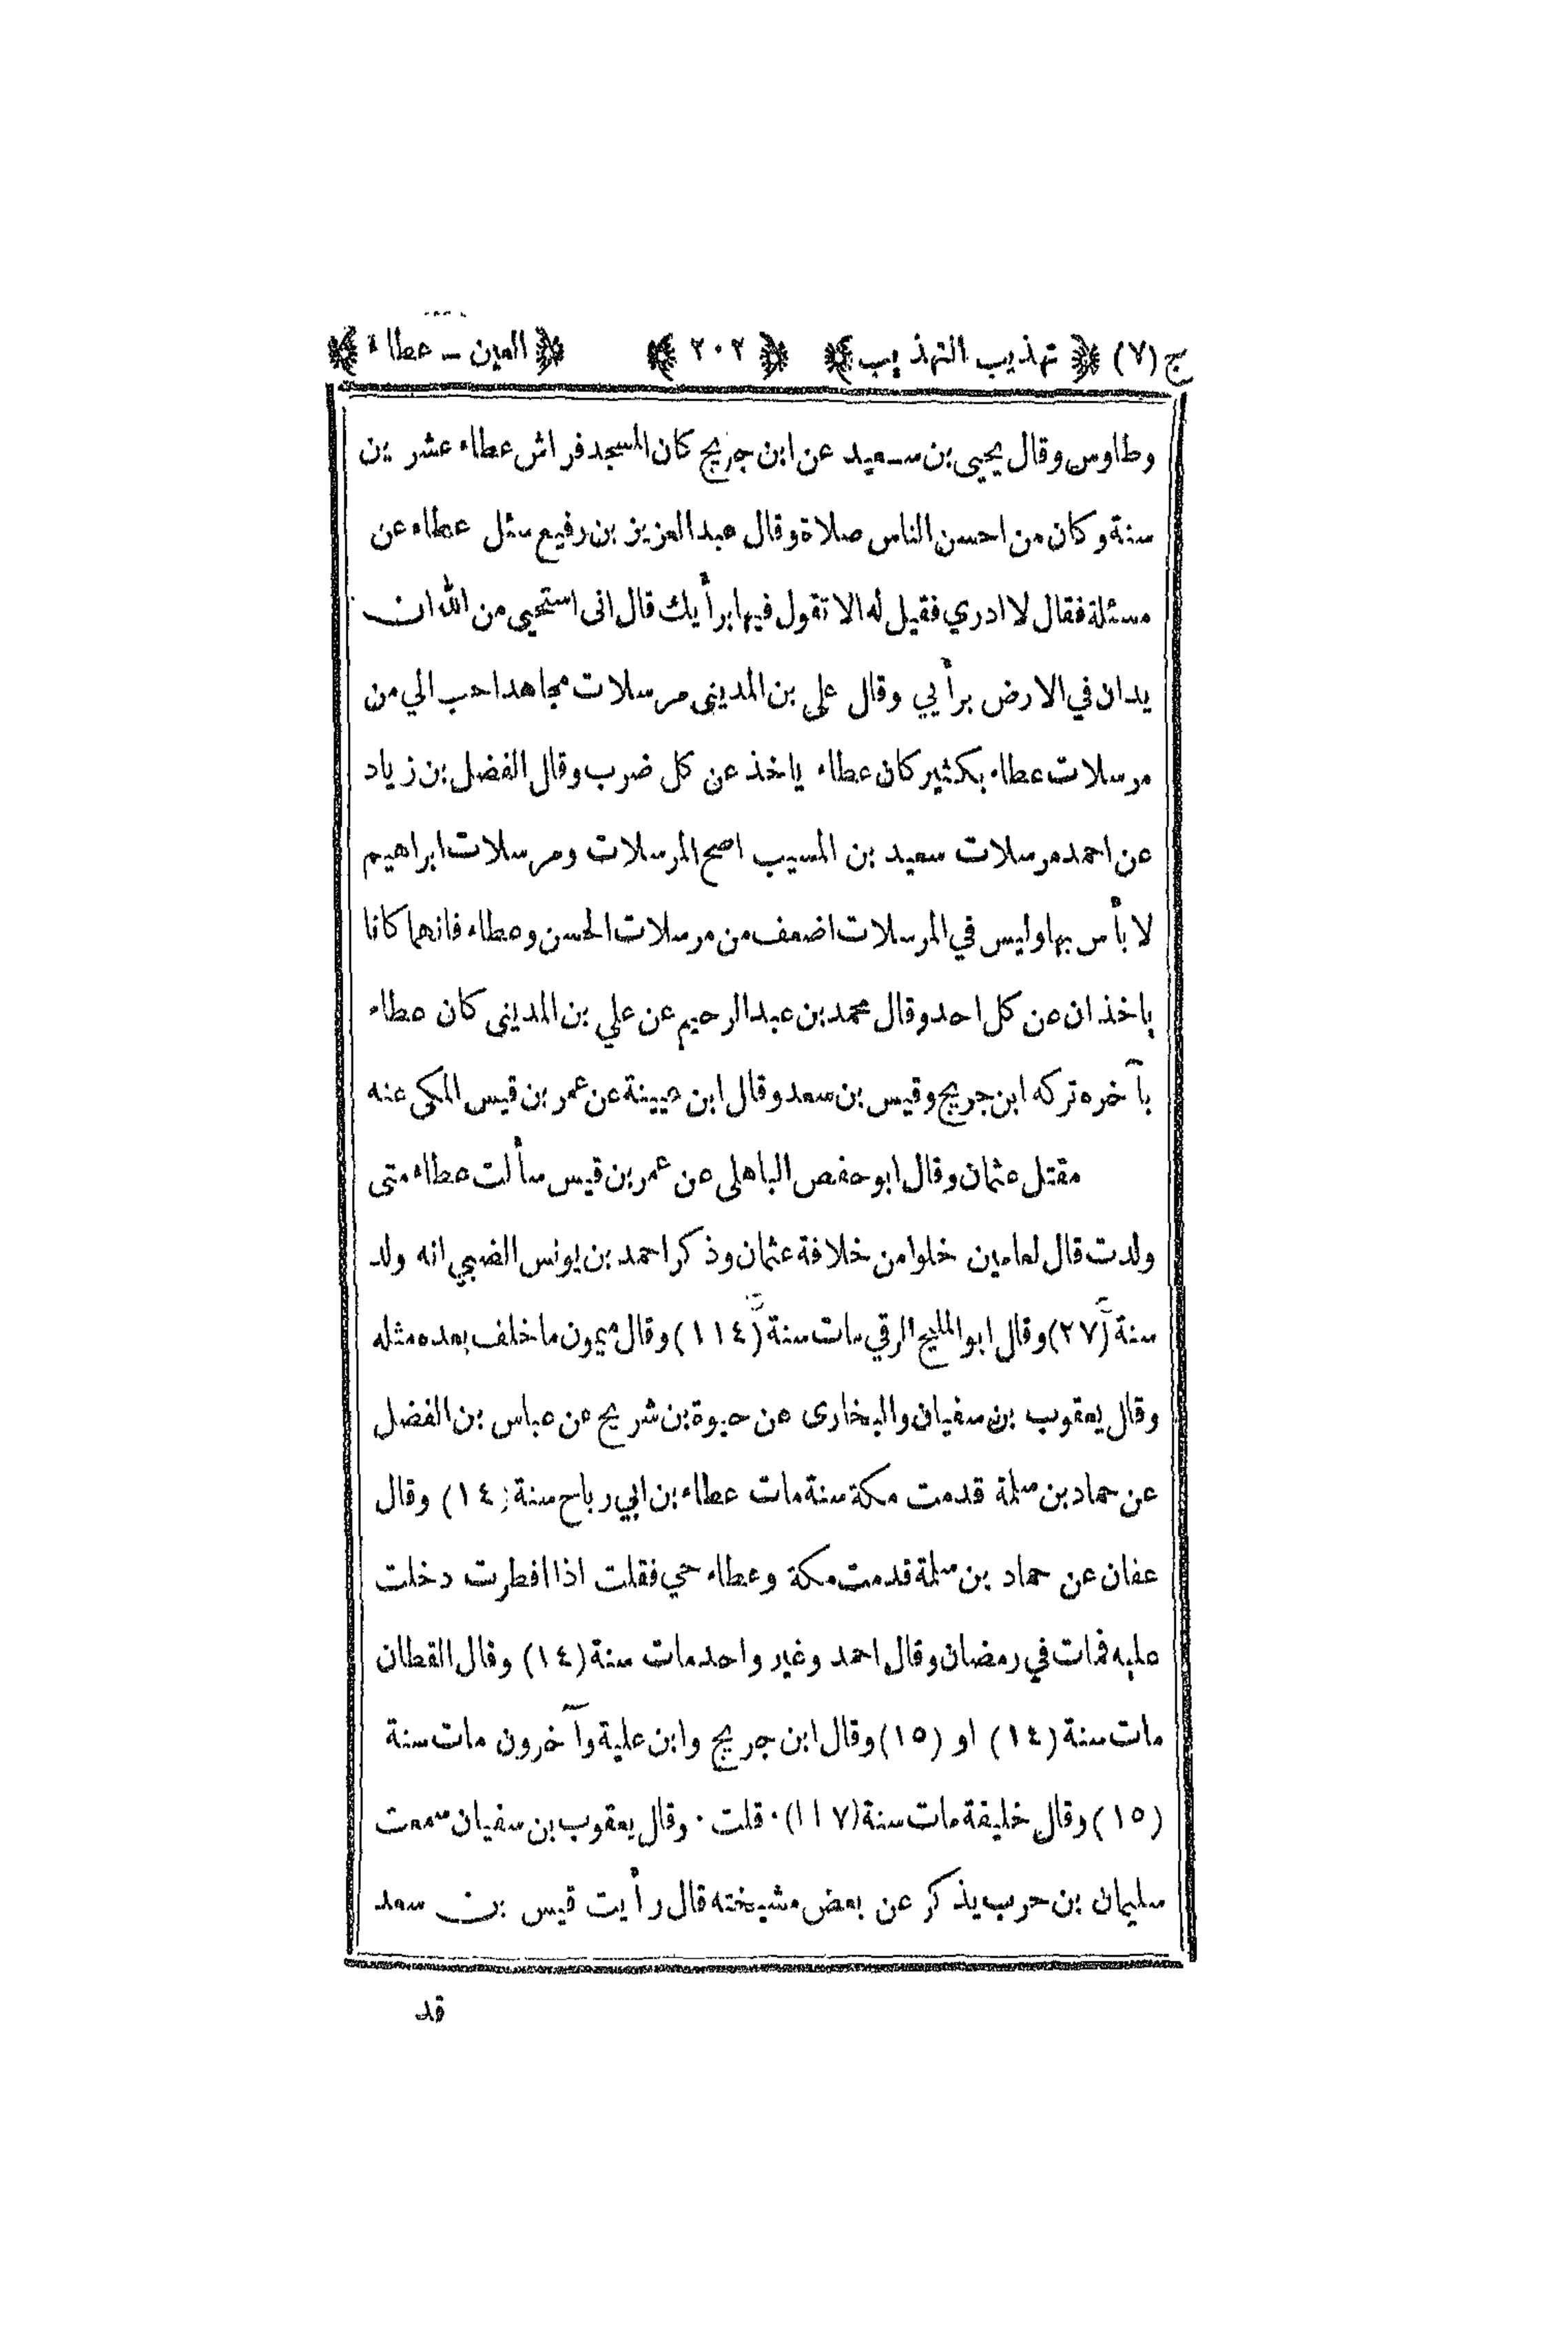 ج (٧) ﴿ تهذيب التهذيب ﴾ ﴿ ٢٠٢ ﴾ ﴿ العين – عطاء ﴾
وطاوس وقال يحيى بن سعيد عن ابن جريج كان المسجد فراش عطاء عشرين
سنة وكان من احسن الناس صلاة وقال عبد العزيز بن رفيع سئل عطاء عن
مسئلة فقال لا ادري فقيل له الا تقول فيها برأيك قال انى استحيى من الله ان
يدان في الارض برأيي وقال علي بن المدينى مرسلات مجاهد احب الي من
مرسلات عطاء بكثير كان عطاء ياخذ عن كل ضرب وقال الفضل بن زياد
عن احمد مرسلات سعيد بن المسيب اصح المرسلات ومرسلات ابراهيم
لا بأس بها وليس في المرسلات اضعف من مرسلات الحسن وعطاء فانهما كانا
ياخذان عن كل احد وقال محمد بن عبد الرحيم عن علي بن المدينى كان عطاء
بآخره تركه ابن جريج وقيس بن سعد وقال ابن عيينة عن عمر بن قيس المكى عنه
مقتل عثمان وقال ابو حفص الباهلى عن عمر بن قيس سألت عطاء متى
ولدت قال لعامين خلوا من خلافة عثمان وذكر احمد بن يونس الضبي انه ولد
سنة (٢٧) وقال ابو المليح الرقي مات سنة (١١٤) وقال ميمون ما خلف بعده مثله
وقال يعقوب بن سفيان والبخارى عن حيوة بن شريح عن عباس بن الفضل
عن حماد بن سلمة قدمت مكة سنة مات عطاء بن ابي رباح سنة (١٤) وقال
عفان عن حماد بن سلمة قدمت مكة وعطاء حي فقلت اذا افطرت دخلت
عليه فمات في رمضان وقال احمد وغير واحد مات سنة (١٤) وقال القطان
مات سنة (١٤) او (١٥) وقال ابن جريج وابن علية وآخرون مات سنة
(١٥) وقال خليفة مات سنة (١١٧) · قلت · وقال يعقوب بن سفيان سمعت
سليمان بن حرب يذكر عن بعض مشيخته قال رأيت قيس بن سعد
قد